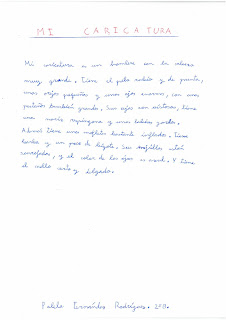 MI CARICATURA
Mi caricatura es un hombre con la cabeza
muy grande. Tiene el pelo rubio y de punta,
unas orejas pequeñas y unos ojos enormes, con unas
pestañas también grandes. Sus cejas son tiene
una nariz respingona y unos labios gordos.
Además tiene unos mofletes bastante inflados. Tiene
barba y un poco de bigote. Sus mejillas están
sonrojadas, y el color de los ojos es marrón. Y tiene
el cuello corto y delgado.
Fernández Rodríguez.